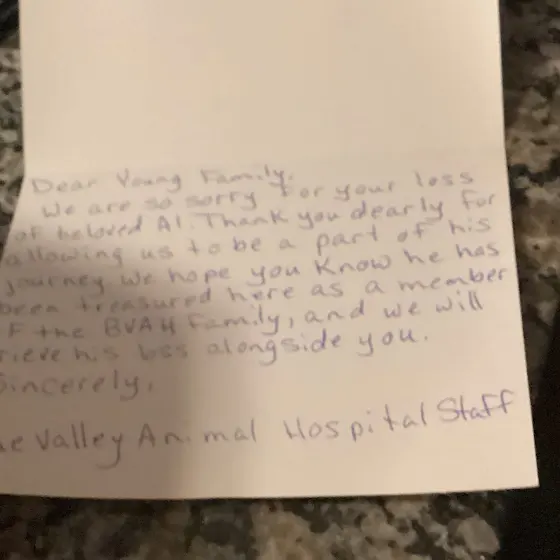 Dear Young Family,
We are so sorry for your loss
of beloved Al. Thank you dearly for
allowing us to be a part of his
journey. We hope you know he has
been treasured here as a member
F the BVAH family, and we will
rieve his loss alongside you.
Sincerely,
Valley Animal Hospital Staff